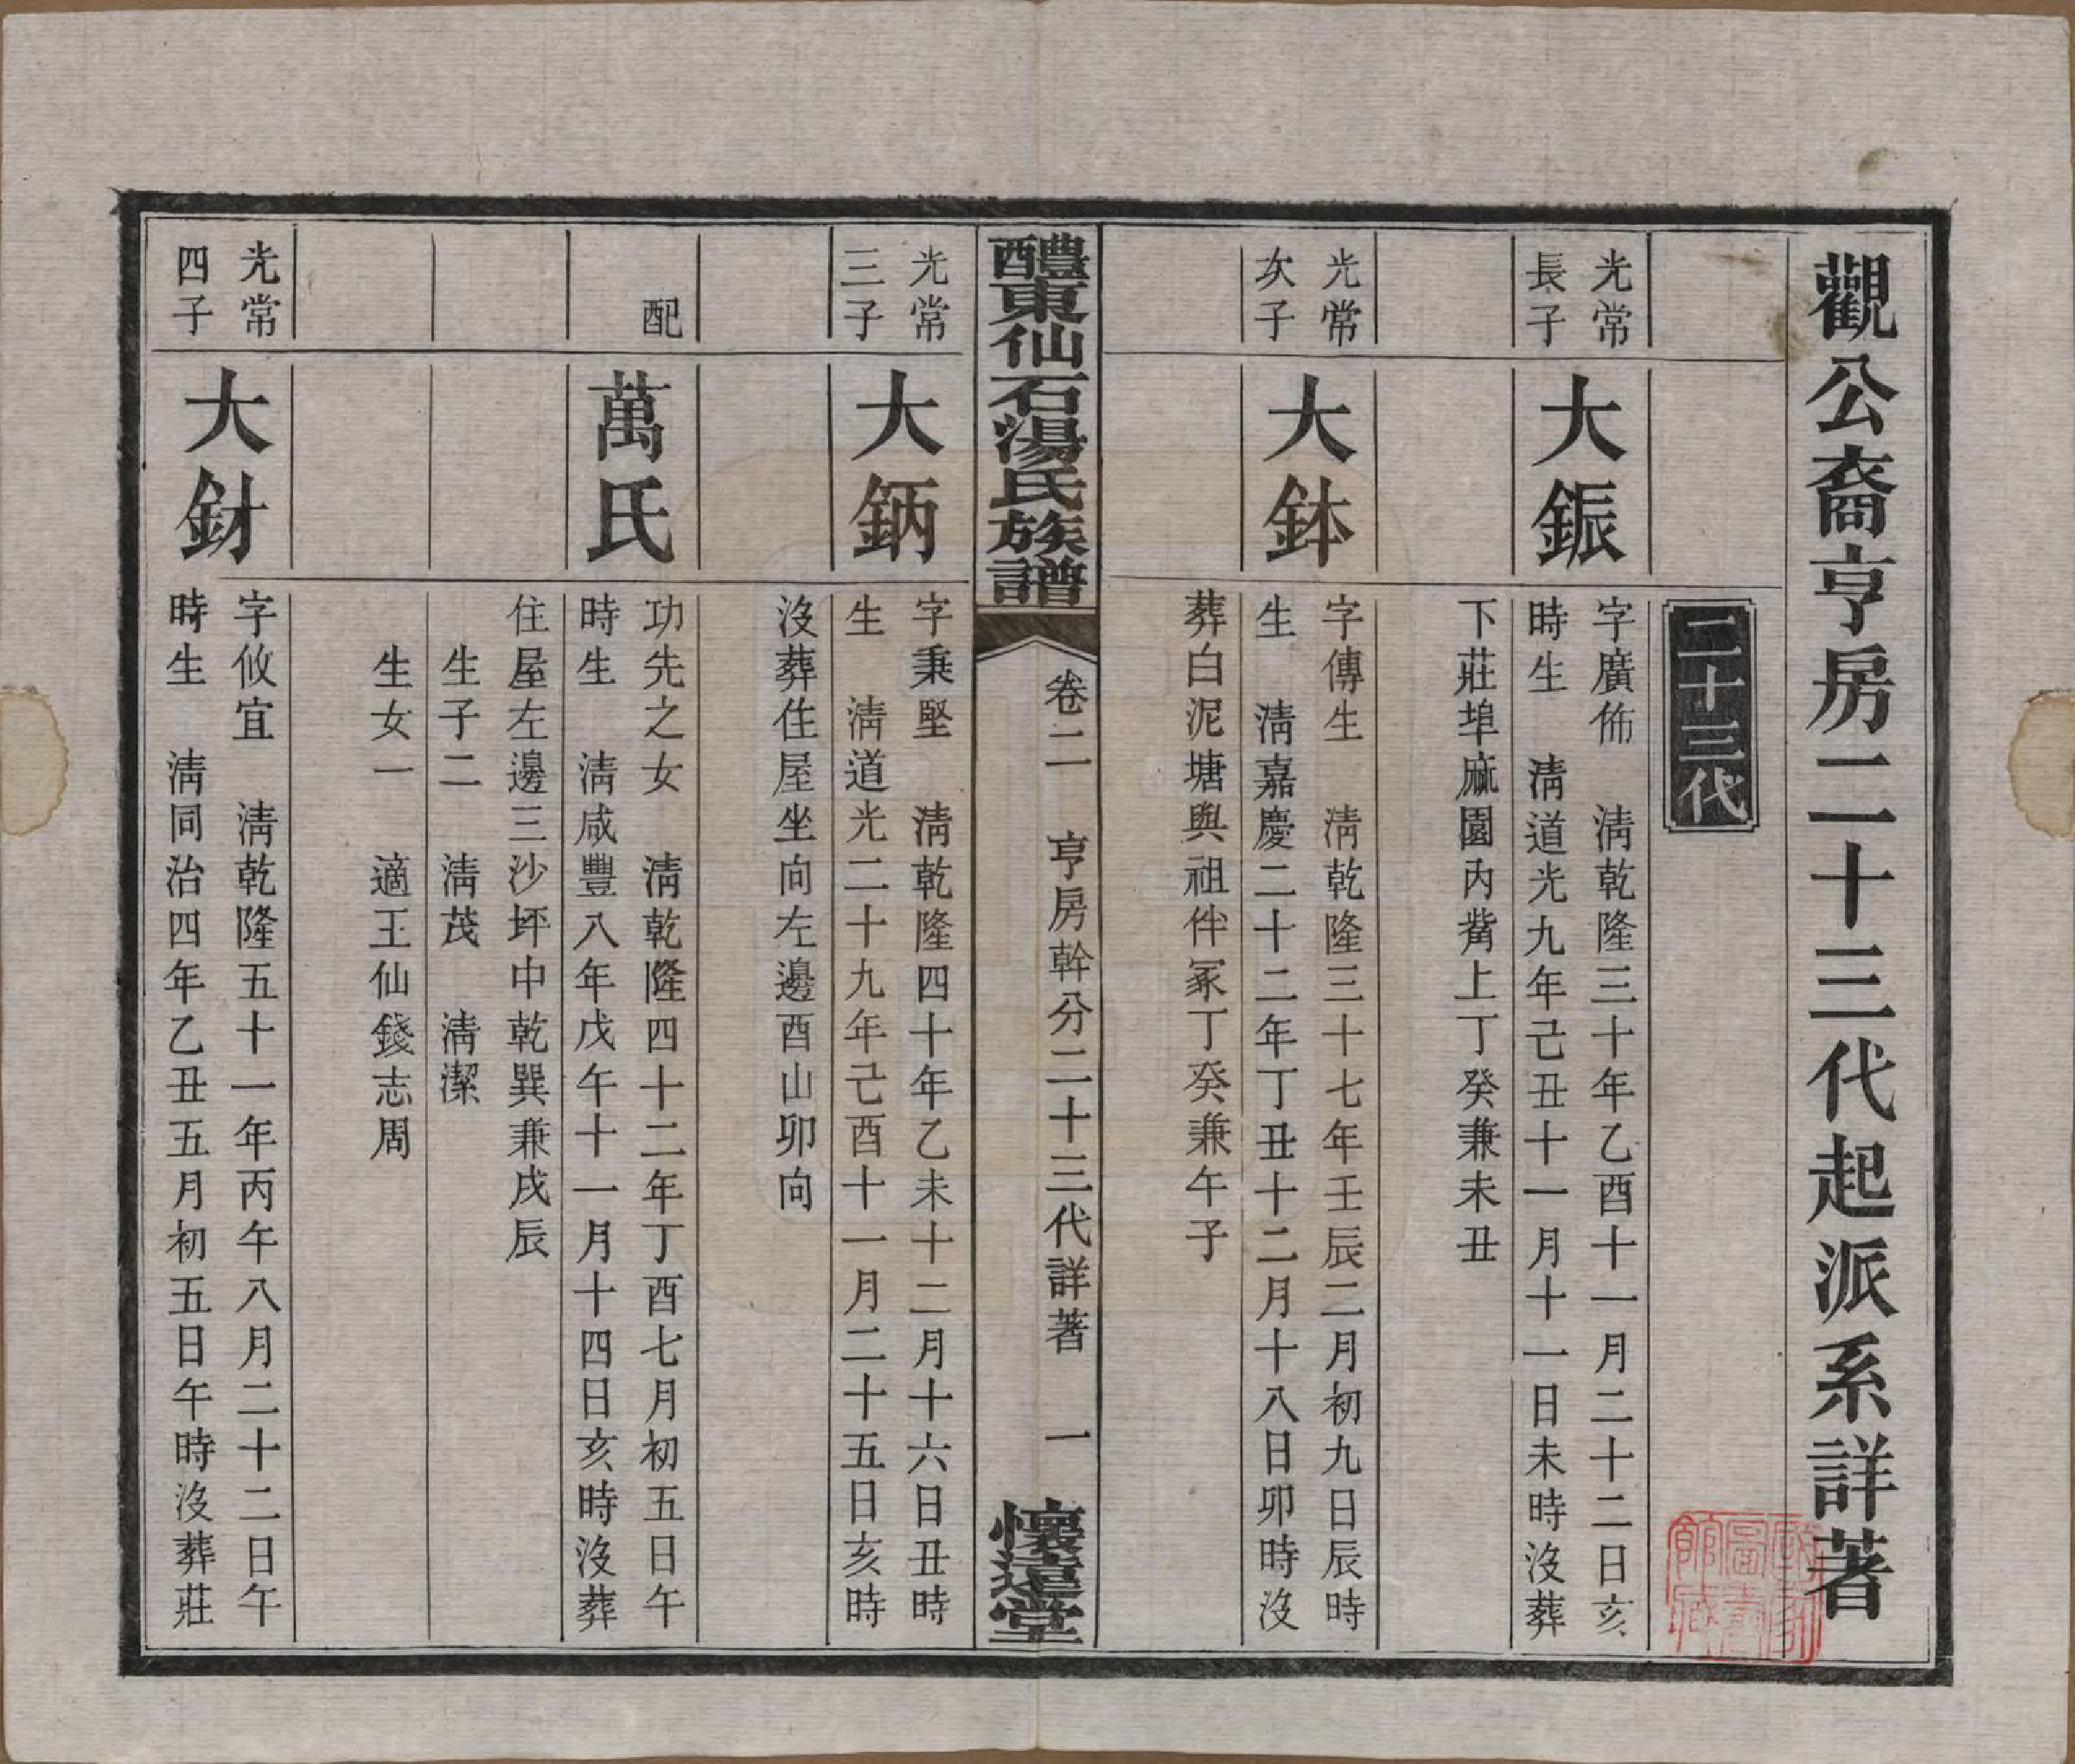 觀公裔亨房二十三代起派系詳著
二十三代
光常
長子
大鋠
字廣佈　淸乾隆三十年乙酉十一月二十二日亥
時生　淸道光九年己丑十一月十一日未時沒葬
下莊埠廠園內觜上丁癸兼未丑
光常
次子
大鉢
字傳生　淸乾隆三十七年壬辰二月初九日辰時
生　淸嘉慶二十二年丁丑十二月十八日卯時沒
葬白泥塘與祖伴冢丁癸兼午子
醴東仙石湯氏族譜
卷二　亨房幹分二十三代詳著　一
懷遠堂
光常
三子
大鈵
字秉堅　淸乾隆四十年乙未十二月十六日丑時
生　淸道光二十九年己酉十一月二十五日亥時
沒葬住屋坐向左邊酉山卯向
配
萬氏
功先之女　淸乾隆四十二年丁酉七月初五日午
時生　淸咸豐八年戊午十一月十四日亥時沒葬
住屋左邊三沙坪中乾巽兼戌辰
生子二　淸茂　淸潔
生女一　適王仙錢志周
光常
四子
大釮
字攸宜　淸乾隆五十一年丙午八月二十二日午
時生　淸同治四年乙丑五月初五日午時沒葬莊